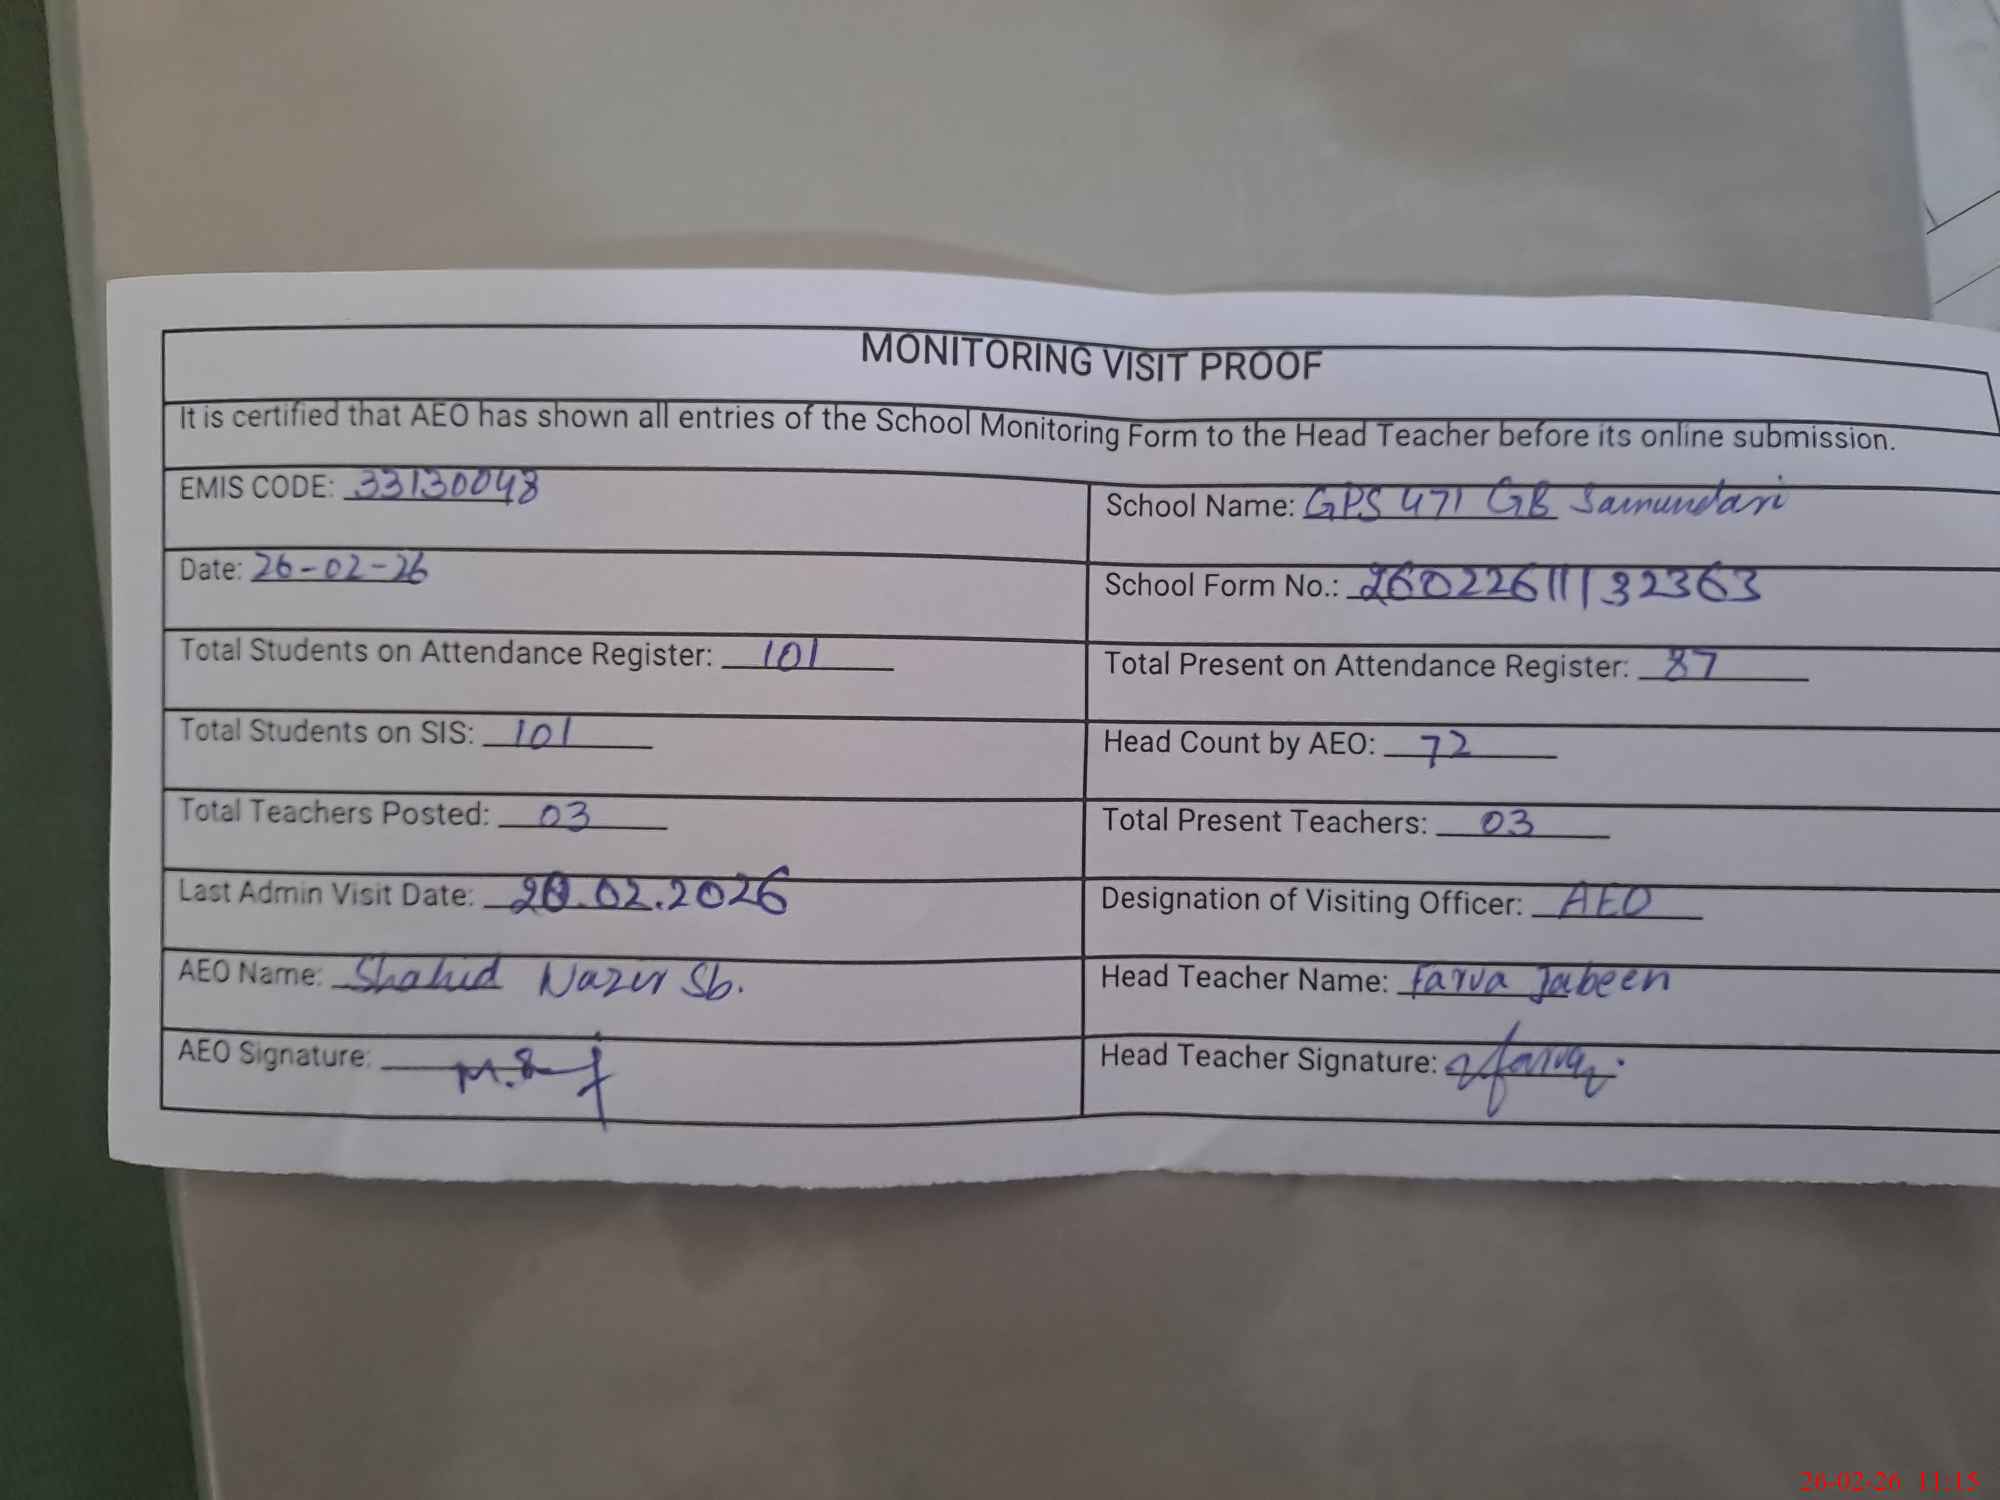 MONITORING VISIT PROOF
It is certified that AEO has shown all entries of the School Monitoring Form to the Head Teacher before its online submission.
EMIS CODE: 33130048
School Name: GPS 471 GB Samundari
Date: 26-02-26
School Form No.: 26022611132363
Total Students on Attendance Register: 101
Total Present on Attendance Register: 87
Total Students on SIS: 101
Head Count by AEO: 72
Total Teachers Posted: 03
Total Present Teachers: 03
Last Admin Visit Date: 20.02.2026
Designation of Visiting Officer: AEO
AEO Name: Shahid Nazir Sb.
Head Teacher Name: Farva Jabeen
AEO Signature:
Head Teacher Signature:
26-02-26 11:15